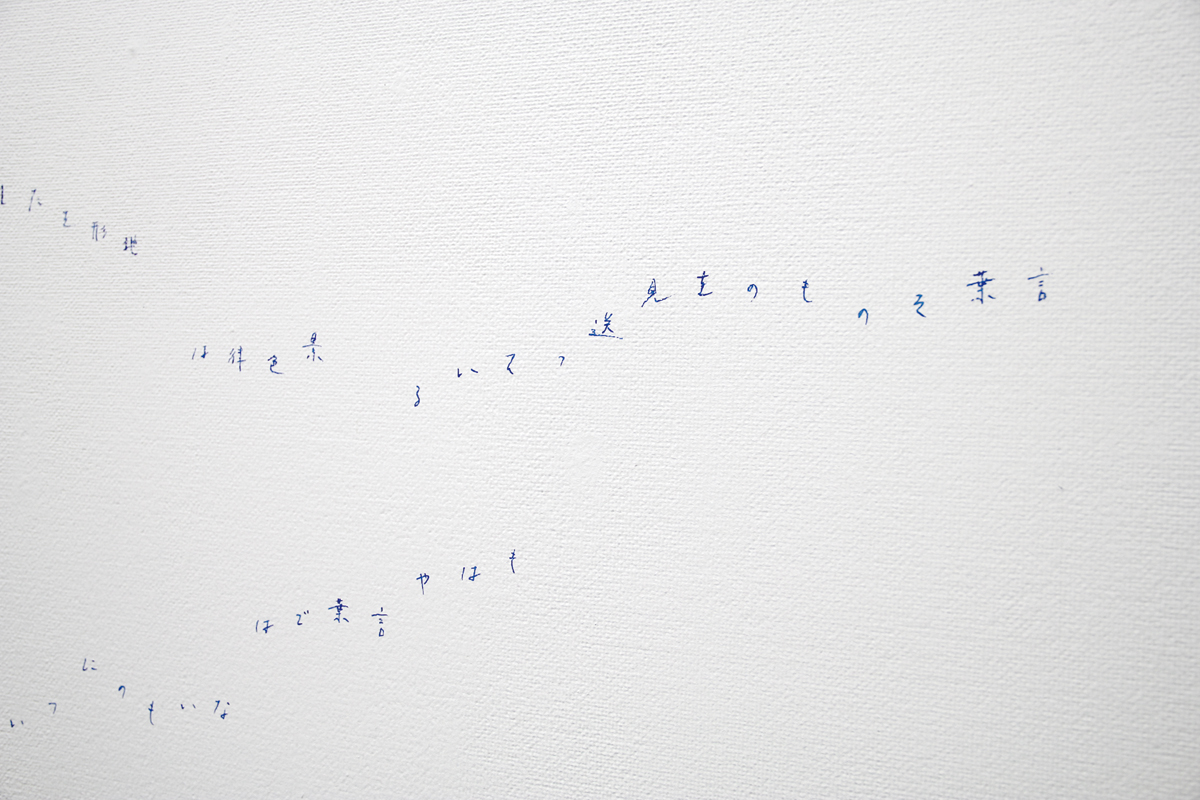 言葉そのものを見送っている
景色律は
地形をた
もはや言葉では
ないものについ